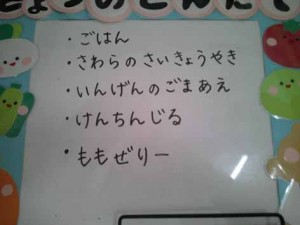 きょうのこんだて
・ごはん
・さわらのさいきょうやき
・いんげんのごまあえ
・けんちんじる
・ももぜりー